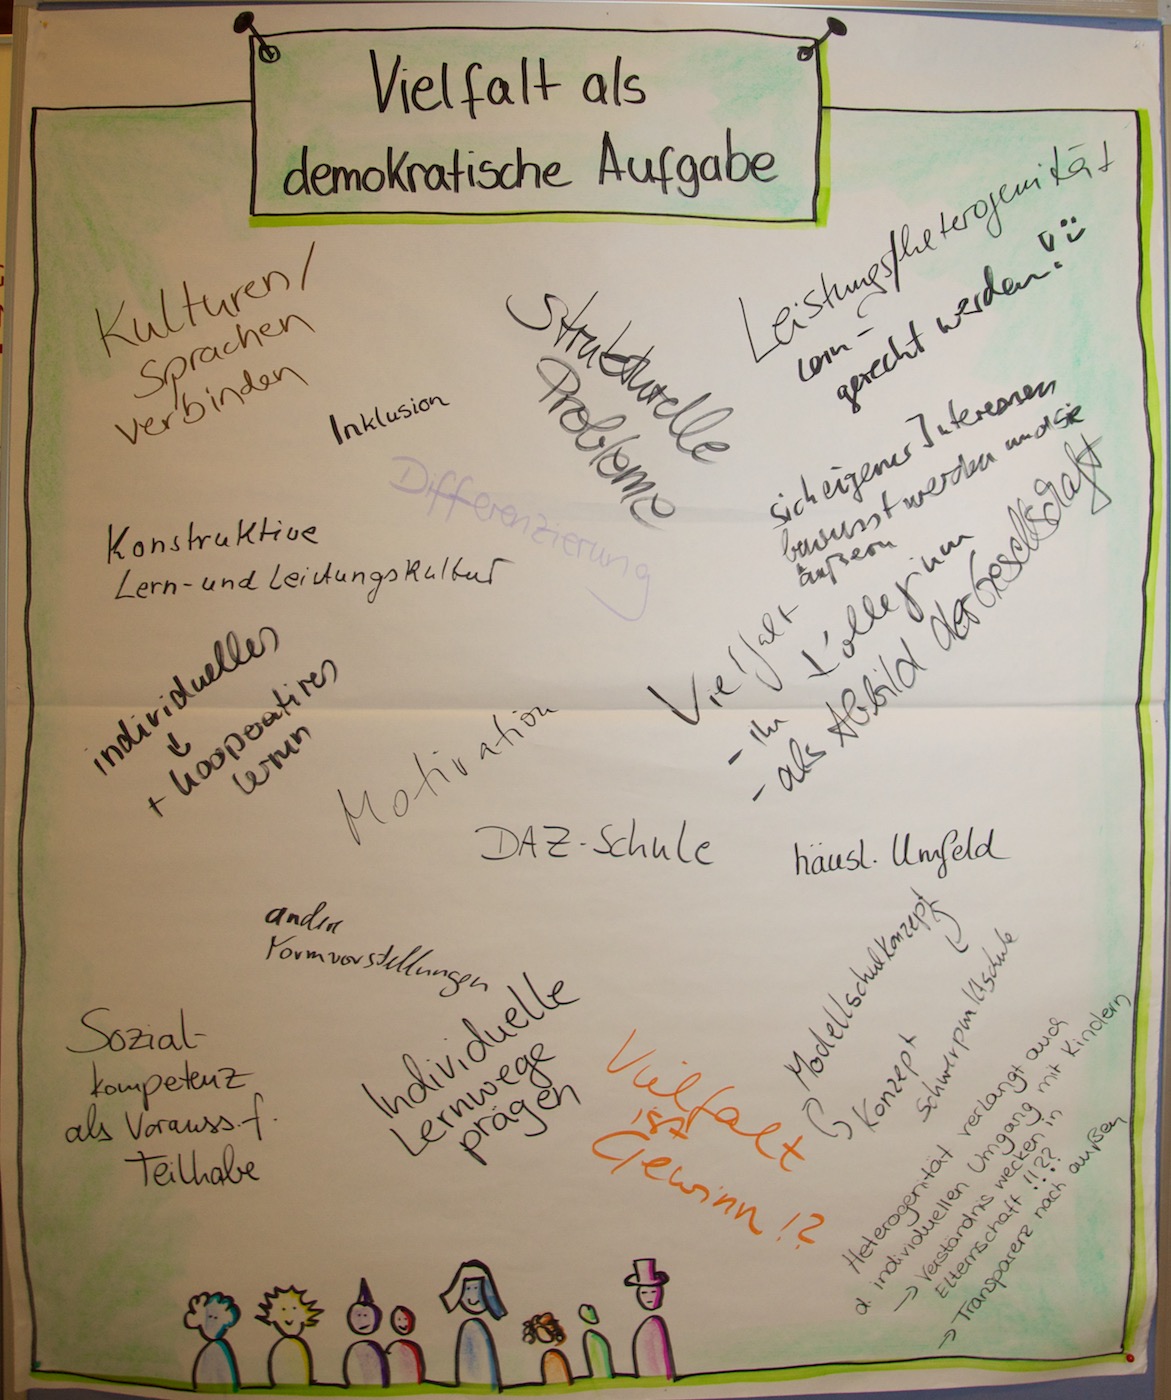 Vielfalt als
demokratische Aufgabe
Kulturen/
Sprachen
verbinden
Inklusion
Strukturelle
Probleme
Leistungs/heterogenität
Lern-
gerecht werden!
Differenzierung
sich eigener Interessen
bewusst werden und sie
äußern
Konstruktive
Lern- und Leistungskultur
individuelles
+ kooperatives
lernen
Vielfalt
- im Kollegium
- als Abbild der Gesellschaft
Motivation
DAZ-Schule
häusl. Umfeld
andere
Formvorstellungen
Modellschulkonzept
Konzept
Schwerpunktschule
Sozial-
kompetenz
als Vorauss. f.
Teilhabe
Individuelle
Lernwege
prägen
Vielfalt
ist
Gewinn!?
Heterogenität verlangt auch
d. individuellen Umgang mit Kindern
→ Verständnis wecken in
Elternschaft!!??
→ Transparenz nach außen